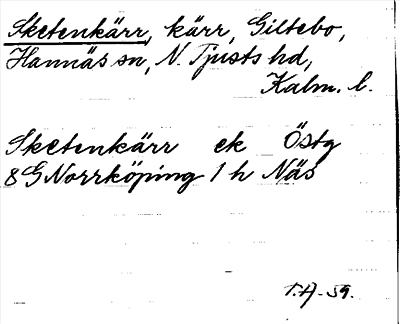 Sketenkärr, kärr, Giltebo,
Hannäs sn, N. Tjusts hd,
Kalm. l.
Sketenkärr ek Östg
8G Norrköping 1 h Näs
T.H. -59.